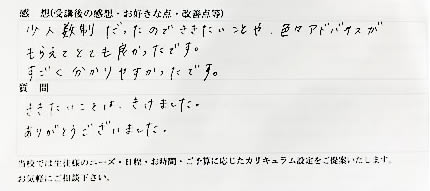 感　想(受講後の感想・お好きな点・改善点等)
少人数制だったのでききたいことや、色々アドバイスが
もらえてとても良かったです。
すごく分かりやすかったです。
質　問
ききたいことは、きけました。
ありがとうございました。
当校では生徒様のニーズ・日程・お時間・ご予算に応じたカリキュラム設定をご提案いたします。
お気軽にご相談下さい。